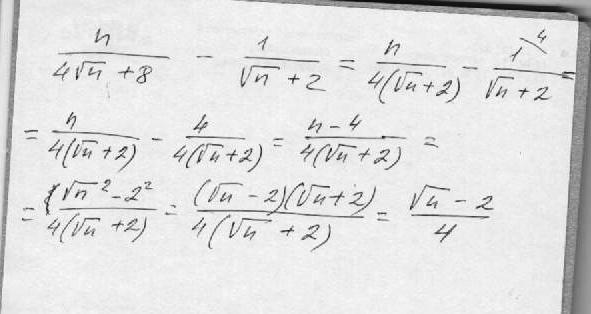 n/(4√n + 8) - 1/(√n + 2) = n/(4(√n + 2)) - 1^4/(√n + 2) =
= n/(4(√n + 2)) - 4/(4(√n + 2)) = (n - 4)/(4(√n + 2)) =
= (√n² - 2²)/(4(√n + 2)) = ((√n - 2)(√n + 2))/(4(√n + 2)) = (√n - 2)/4